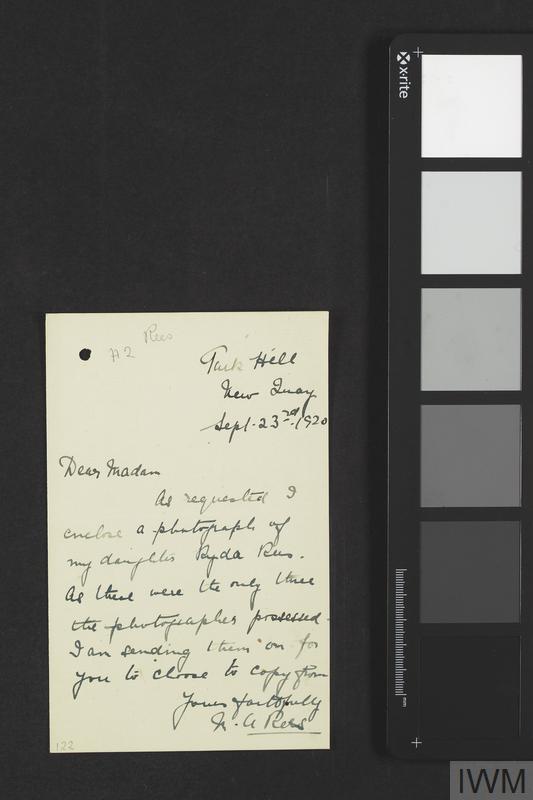 Rees
A2
Park Hill
New Quay
Sept. 23rd. 1920
Dear Madam
As requested I
enclose a photograph of
my daughter Ryda Rees.
As these were the only three
the photographer possessed.
I am sending them on for
you to choose to copy from
Yours faithfully
A Rees
122
x-rite
mm
IWM